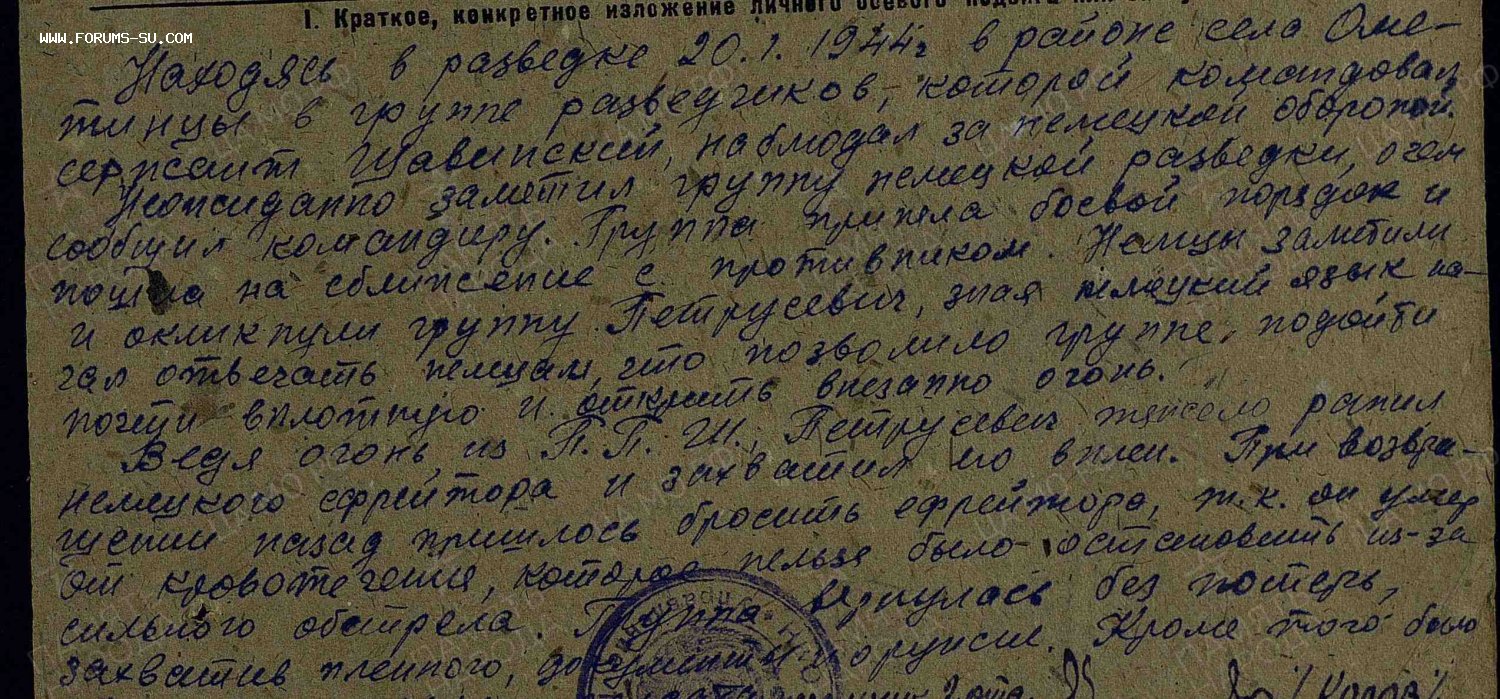 I. Краткое, конкретное изложение личного боевого подвига
WWW.FORUMS-SU.COM
Находясь в разведке 20.1.1944г в районе села Оме-
тинцы в группе разведчиков, которой командовал
сержант Щавинский, наблюдал за немецкой обороной.
Неожиданно заметил группу немецкой разведки, о чем
сообщил командиру. Группа приняла боевой порядок и
пошла на сближение с противником. Немцы заметили
и окликнули группу. Петрусевич, зная немецкий язык на-
чал отвечать немцам, что позволило группе, подойти
почти вплотную и открыть внезапно огонь.
Ведя огонь из П.П.Ш., Петрусевич тяжело ранил
немецкого ефрейтора и захватил его в плен. При возвра-
щении назад пришлось бросить ефрейтора, т.к. он умер
от кровотечения, которое нельзя было остановить из-за
сильного обстрела. Группа вернулась без потерь,
захватив пленного, документы и оружие. Кроме того было